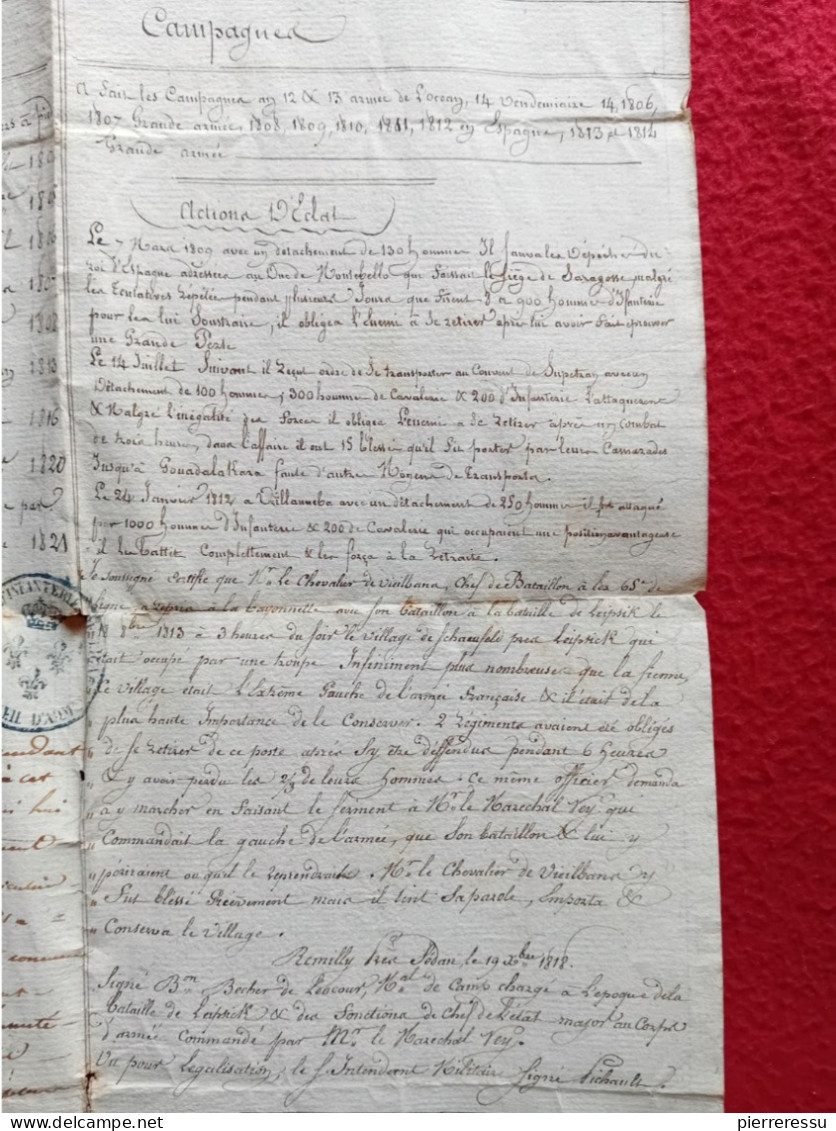 Campagnes
a fait les Campagnes an 12 & 13 armée de L'ocean, 14 Vendemiaire 14, 1806,
1807 Grande armée, 1808, 1809, 1810, 1811, 1812 en Espagne, 1813 et 1814
Grande armée
Actions D'Eclat
Le 7 Mars 1809 avec un détachement de 130 hommes Il sauva les Dépêches du
roi d'Espagne adressées au Duc de Montebello qui faisait le Siège de Saragosse malgré
les Tentatives répétées pendant plusieurs Jours que firent 8 a 900 hommes d'Infanterie
pour les lui Soustraire, il obligea l'Enemi à Se retirer après lui avoir fait éprouver
une Grande Perte
Le 14 Juillet Suivant il reçut ordre de Se transporter au Couvent de Supetran avec un
Détachement de 100 hommes, 300 hommes de Cavalerie & 200 d'Infanterie l'attaquèrent
& Malgré l'inégalité des forces il obligea l'enemi a Se retirer après un Combat
de trois heures, dans l'affaire il eut 15 blessés qu'il fit porter par leurs Camarades
Jusqu'à Gouadalakara faute d'autre Moyens de transporter.
Le 24 Janvier 1812 a Villanueba avec un détachement de 250 hommes il fut attaqué
par 1000 hommes d'Infanterie & 200 de Cavalerie qui occupaient une position avantageuse
il les battit Complettement & les força à la retraite.
Je soussigné certifie que Mr. le Chevalier de Vieilbans, Chef de Bataillon à lex 65e de
Ligne a repris à la bayonnette avec son bataillon à la bataille de Leipsik le
1813 à 3 heures du soir le village de Schaenfeld près Leiptick qui
était occupé par une troupe Infiniment plus nombreuse que la sienne,
ce village était l'Extrême Gauche de l'armée Française & il était de la
plus haute Importance de le Conserver. 2 régiments avaient été obligés
de se retirer de ce poste après s'y être déffendus pendant 6 heures
& y avoir perdu les 2/3 de leurs hommes. Ce même officier demanda
a y marcher en faisant le serment à Mr. le Marechal Ney que
Commandait la gauche de l'armée, que Son bataillon & lui y
périraient ou qu'il le reprendrait. Mr. le Chevalier de Vieilbans y
Fut blessé Grièvement mais il tint Sa parole, Emporta &
Conserva le Village.
Remilly près Sédan, le 19 Xbre 1818.
Signé Bon. Becher de Leocour, Mal de Camp chargé a L'époque de la
Bataille de Leiptick & des fonctions de chef de l'état major au Corps
d'armée Commandé par Mr. le Marechal Ney.
Vu pour Legalisation, le S. Intendant Militaire Signé Pichault
1813
1816
1820
1821
INFANTERIE
pierreressu
www.delcampe.net